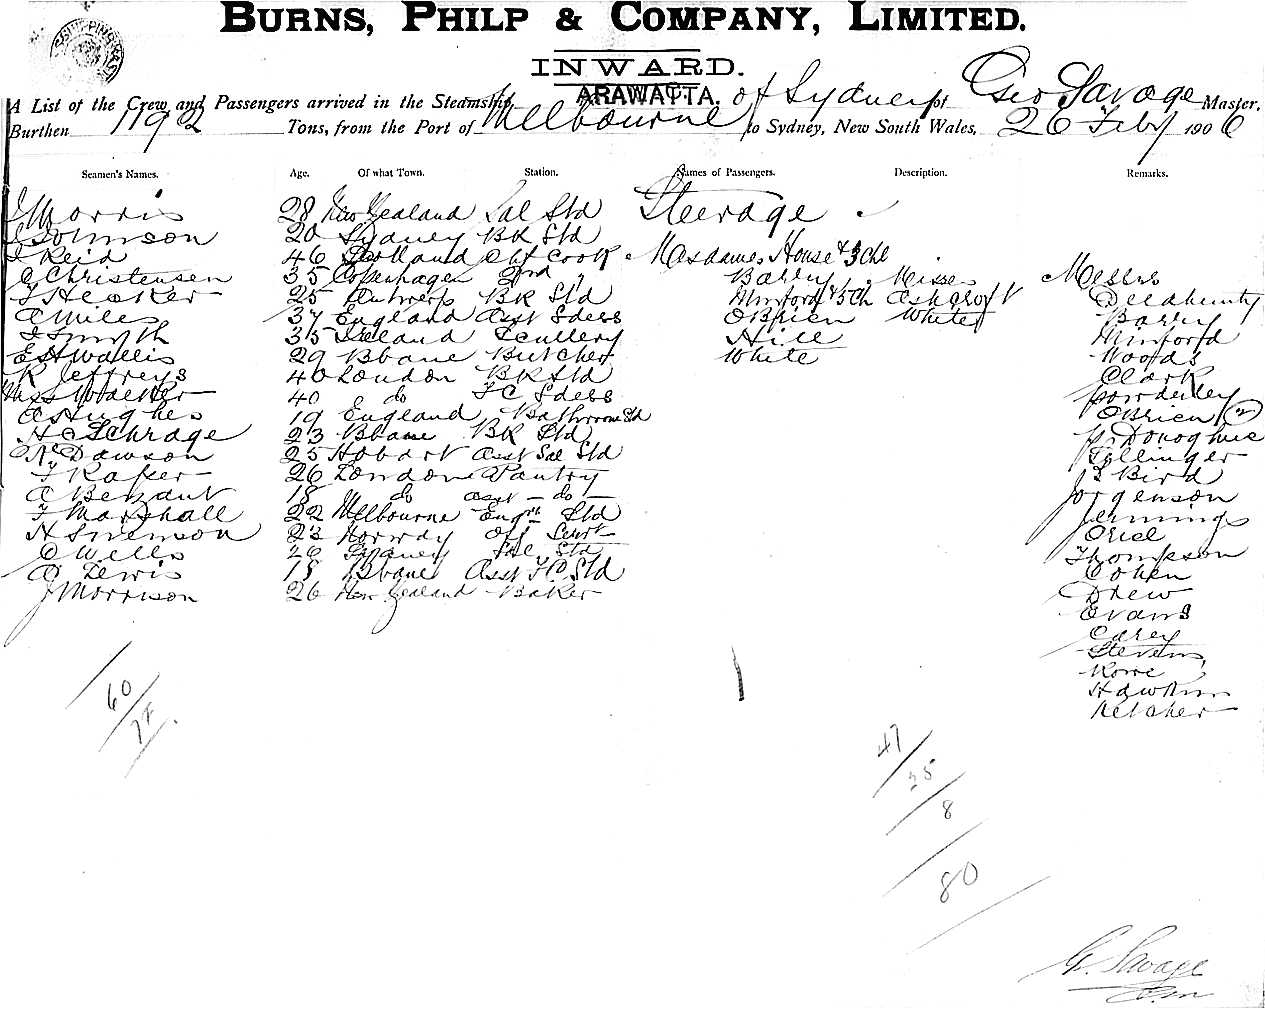 BURNS, PHILP & COMPANY, LIMITED.
INWARD.
A List of the Crew and Passengers arrived in the Steamship ARAWATTA. of Sydney of Geo Savage Master,
Burthen 1192 Tons, from the Port of Melbourne to Sydney, New South Wales, 26 Feby 1906
Seamen's Names. Age. Of what Town. Station. Names of Passengers. Description. Remarks.
J Morris 28 New Zealand Sal Std Steerage
Johnson 20 Sydney BR Std
J Reid 46 Scotland Chf Cook Mesdames House & 3 Chl
C Christensen 35 Copenhagen 2nd " Barry Misses Messrs
Hecker 25 Antwerp BR Std Minford & 5 Ch Ashcroft Delahunty
A Miles 37 England Asst Sdess OBrien White Barry
J Smyth 35 Ireland Scullery Hill Minford
E H Wallis 29 Bbane Butcher White Woods
R Jeffreys 40 London BR Std Clark
Miss Walker 40 do FC Sdess Powderley
A Hughes 19 England Bathroom Std OBrien (2)
H C Schrage 23 Bbane BR Std Donoghue
Dawson 25 Hobart Asst Sal Std
F Raper 26 London Pantry J S Bird
A Bezant 18 do asst - do - Jorgenson
F Marshall 22 Melbourne Engrs Std Jennings
H Swenson 23 Norway Off Oriel
C Wells 26 Sydney Sal Std Thompson
A Lewis 18 Bbane Asst FC Std Cohen
J Morrison 26 New Zealand Baker Drew
Evans
Carey
Stevens
Rowe
Hawkins
Ketcher
60
72
47
25
8
80
G. Savage